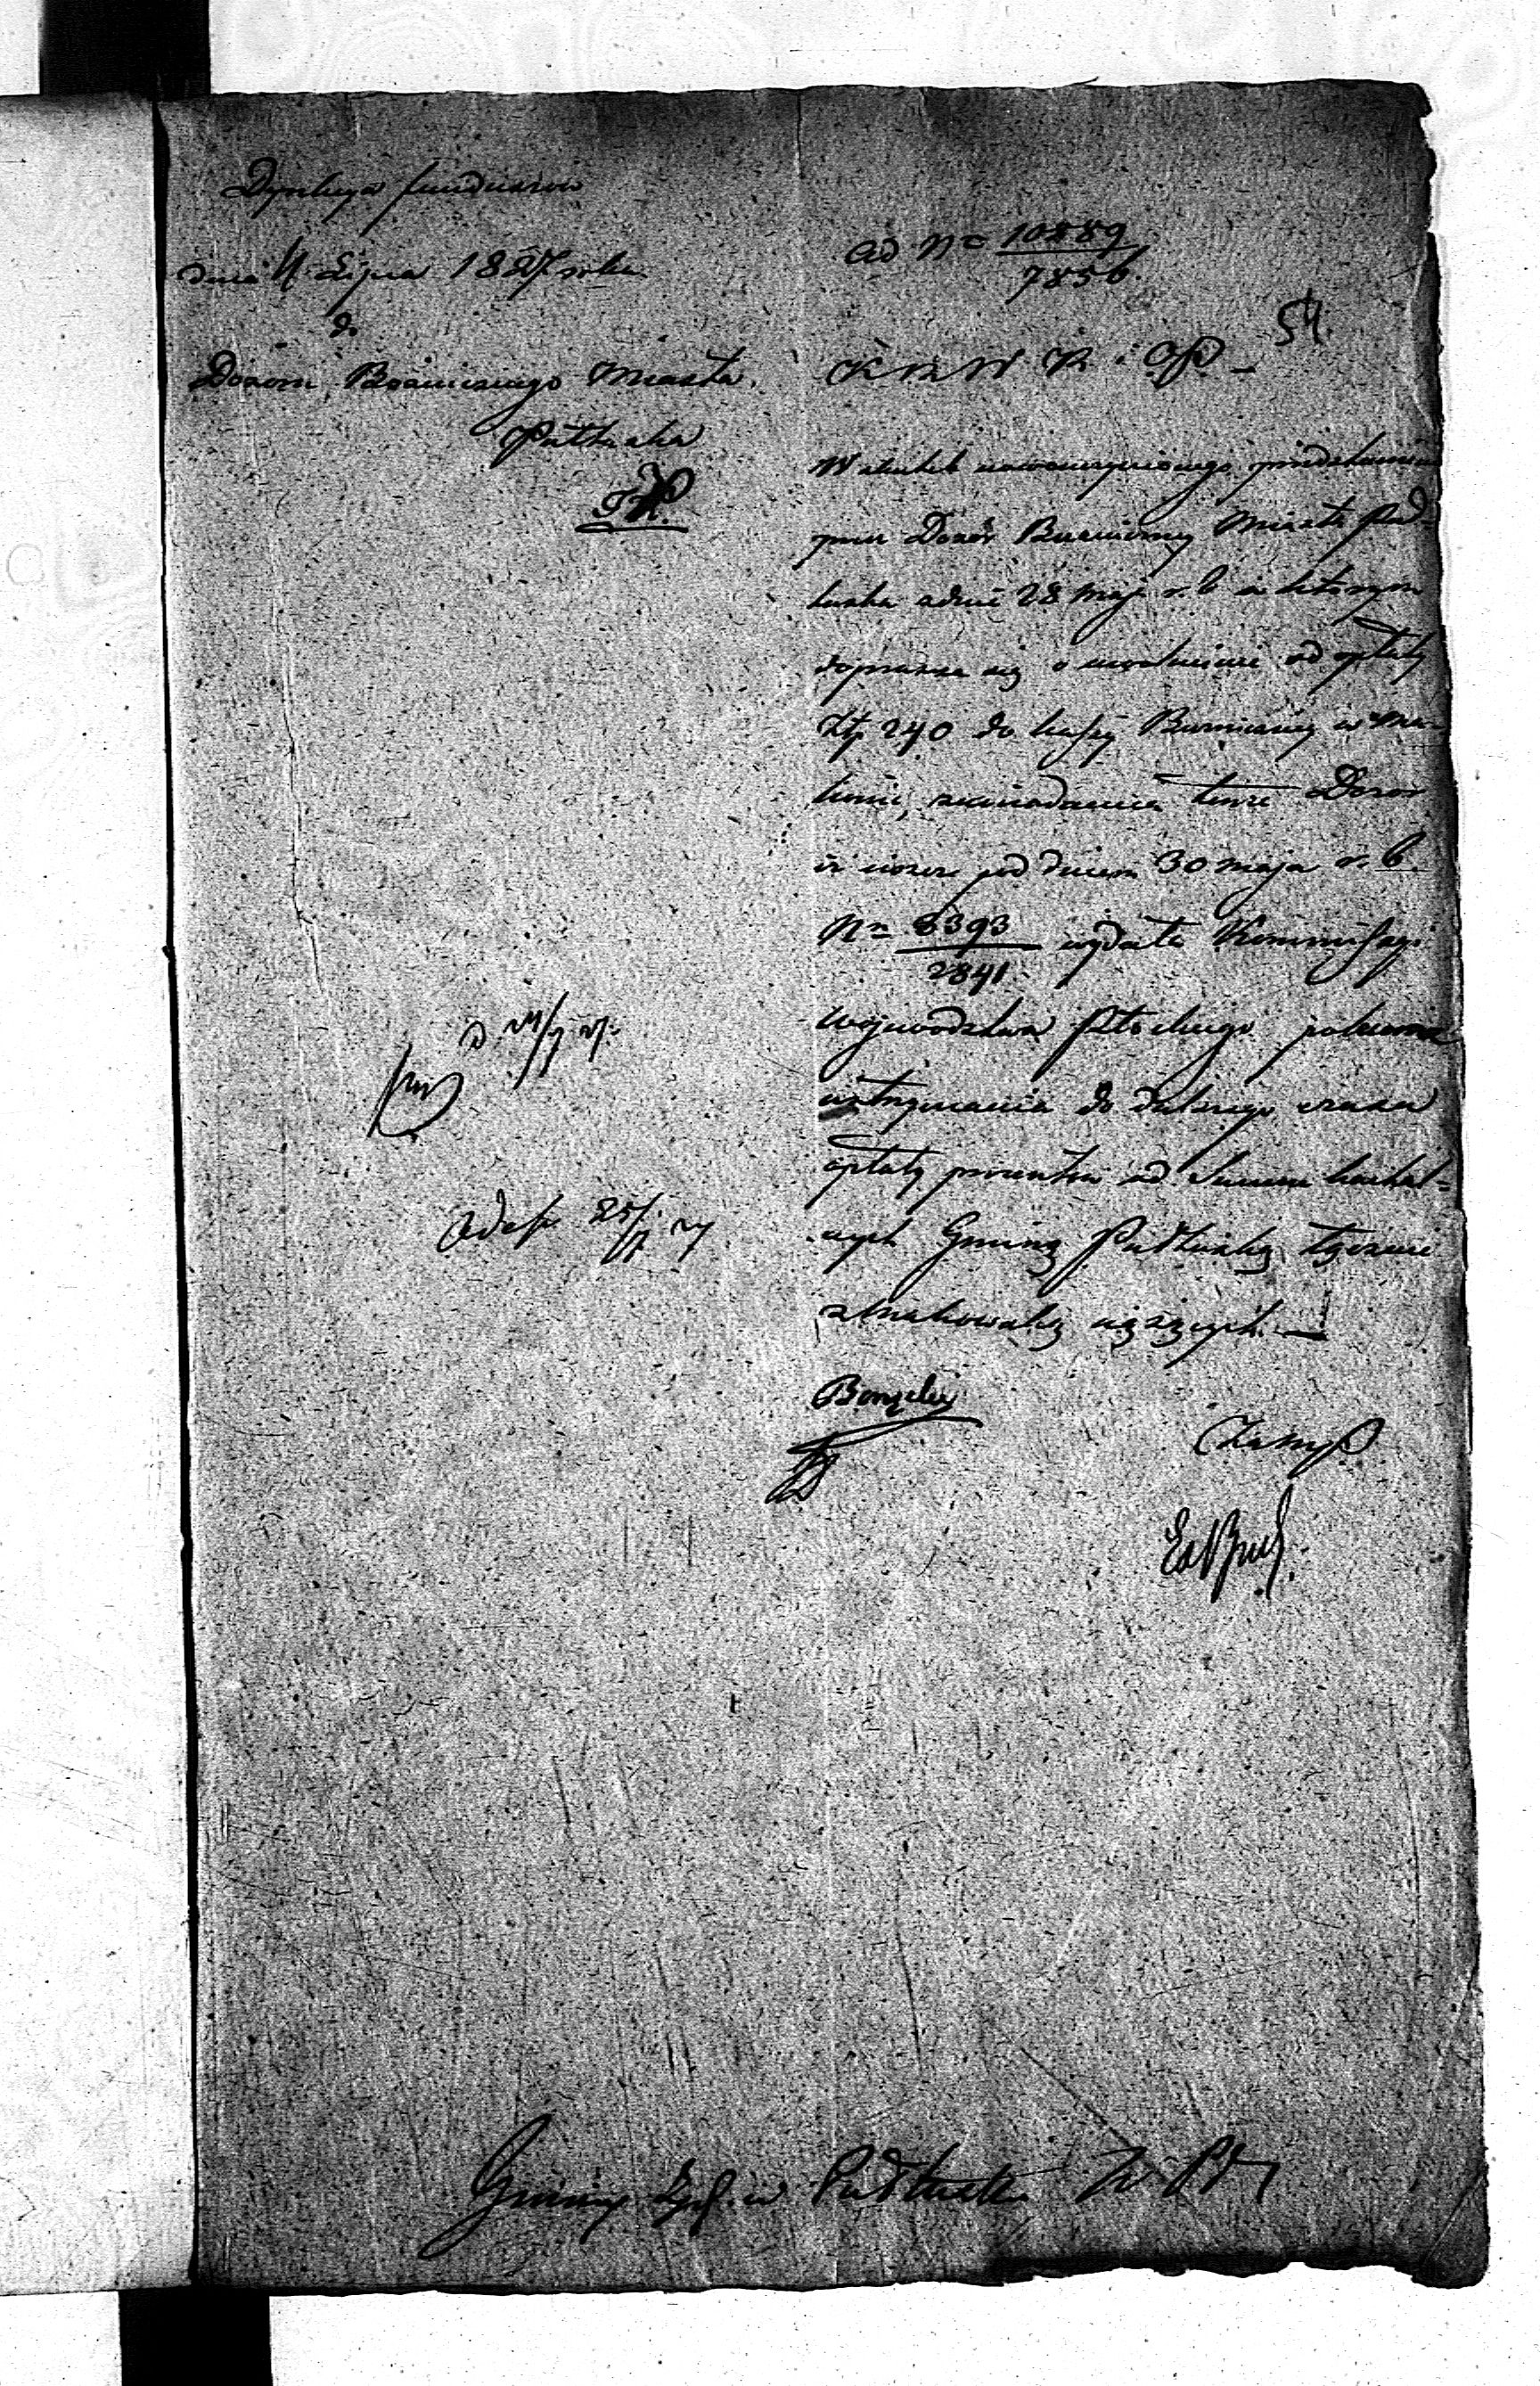 Dyrekcya funduszów
dnia 11 Lipca 1827 roku
do
Dozoru Bożniczego Miasta
Pułtuska
ad No 10889/7856.
54.
K R W R i O P
W skutek nowouczynionego przedstawienia
przez Dozór Bużniczny Miasta Puł-
tuska z dnia 28 Maja r. b. w którym
doprasza się o uwolnienie od opłaty
Złp 240 do kassy Bużniczny w Ma-
kowie, zawiadamia tenże Dozor
iż pod dniem 30 maja r. b.
No 8393/2841 wydała Kommissyi
Województwa Płockiego polecenie
wstrzymania do dalszego czasu
opłaty procentów od Summ kahal-
nych Gminę Pułtuską łącznie
z Makowską ciążących. —
24/7 27.
25/7 27
Gminy w Pułtusku